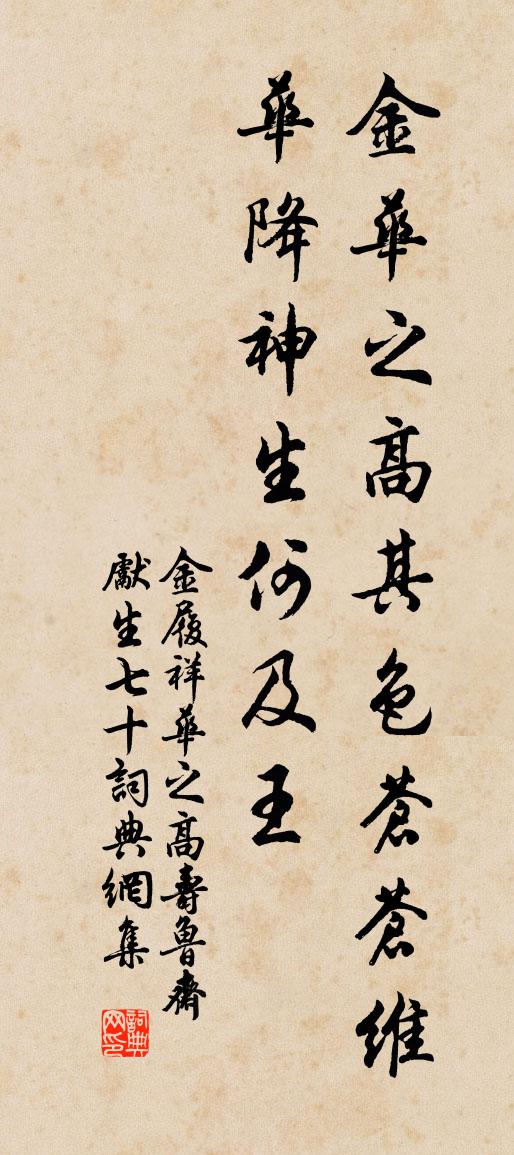 金華之高其色蒼蒼維
華降神生何及王
金履祥華之高壽魯齋
獻生七十詞典網集
詞典网印